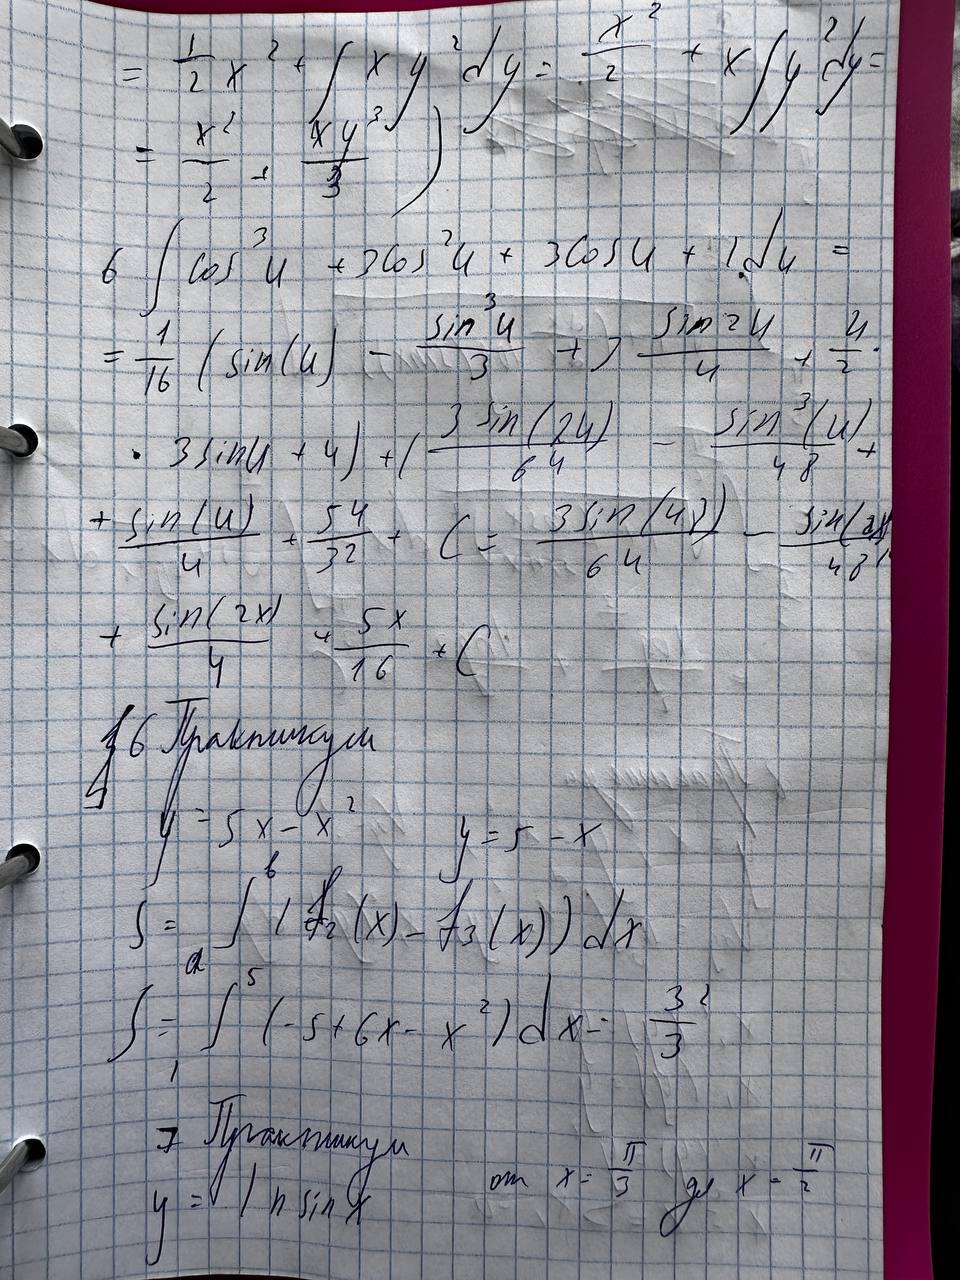 = 1/2 x² + ∫ x y² dy = x²/2 + x ∫ y² dy =
= x²/2 + xy³/3 )
6 ∫ cos³u + 3cos²u + 3cosu + 1 du =
= 1/16 (sin(u) - sin³u/3 + 3 sin2u/4 + u/2 ·
· 3sinu + u) + ( 3sin(2u)/64 - sin³(u)/48 +
+ sin(u)/4 + 5u/32 + C = 3sin(4x)/64 - sin(2x)/48
+ sin(2x)/4 + 5x/16 + C
6 Практикум
y = 5x - x² y = 5 - x
S = ∫ₐᵇ (f₂(x) - f₃(x)) dx
S = ∫₁⁵ (-5 + 6x - x²) dx = 32/3
7 Практикум
y = ln sin x от x = π/3 до x = π/2